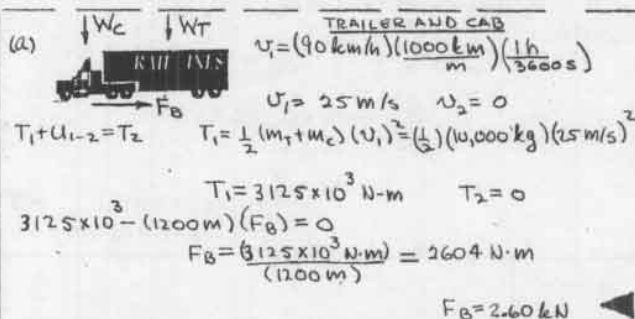 ↓W_C ↓W_T TRAILER AND CAB
(a) v₁=(90 km/h)(1000 km/m)(1h/3600s)
F_B
v₁= 25 m/s v₂= 0
T₁+U₁₋₂=T₂ T₁= ½ (m_T+m_C) (v₁)²=(½)(10,000 kg)(25 m/s)²
T₁= 3125×10³ N-m T₂= 0
3125×10³ - (1200 m)(F_B) = 0
F_B= (3125×10³ N·m)/(1200 m) = 2604 N·m
F_B= 2.60 kN